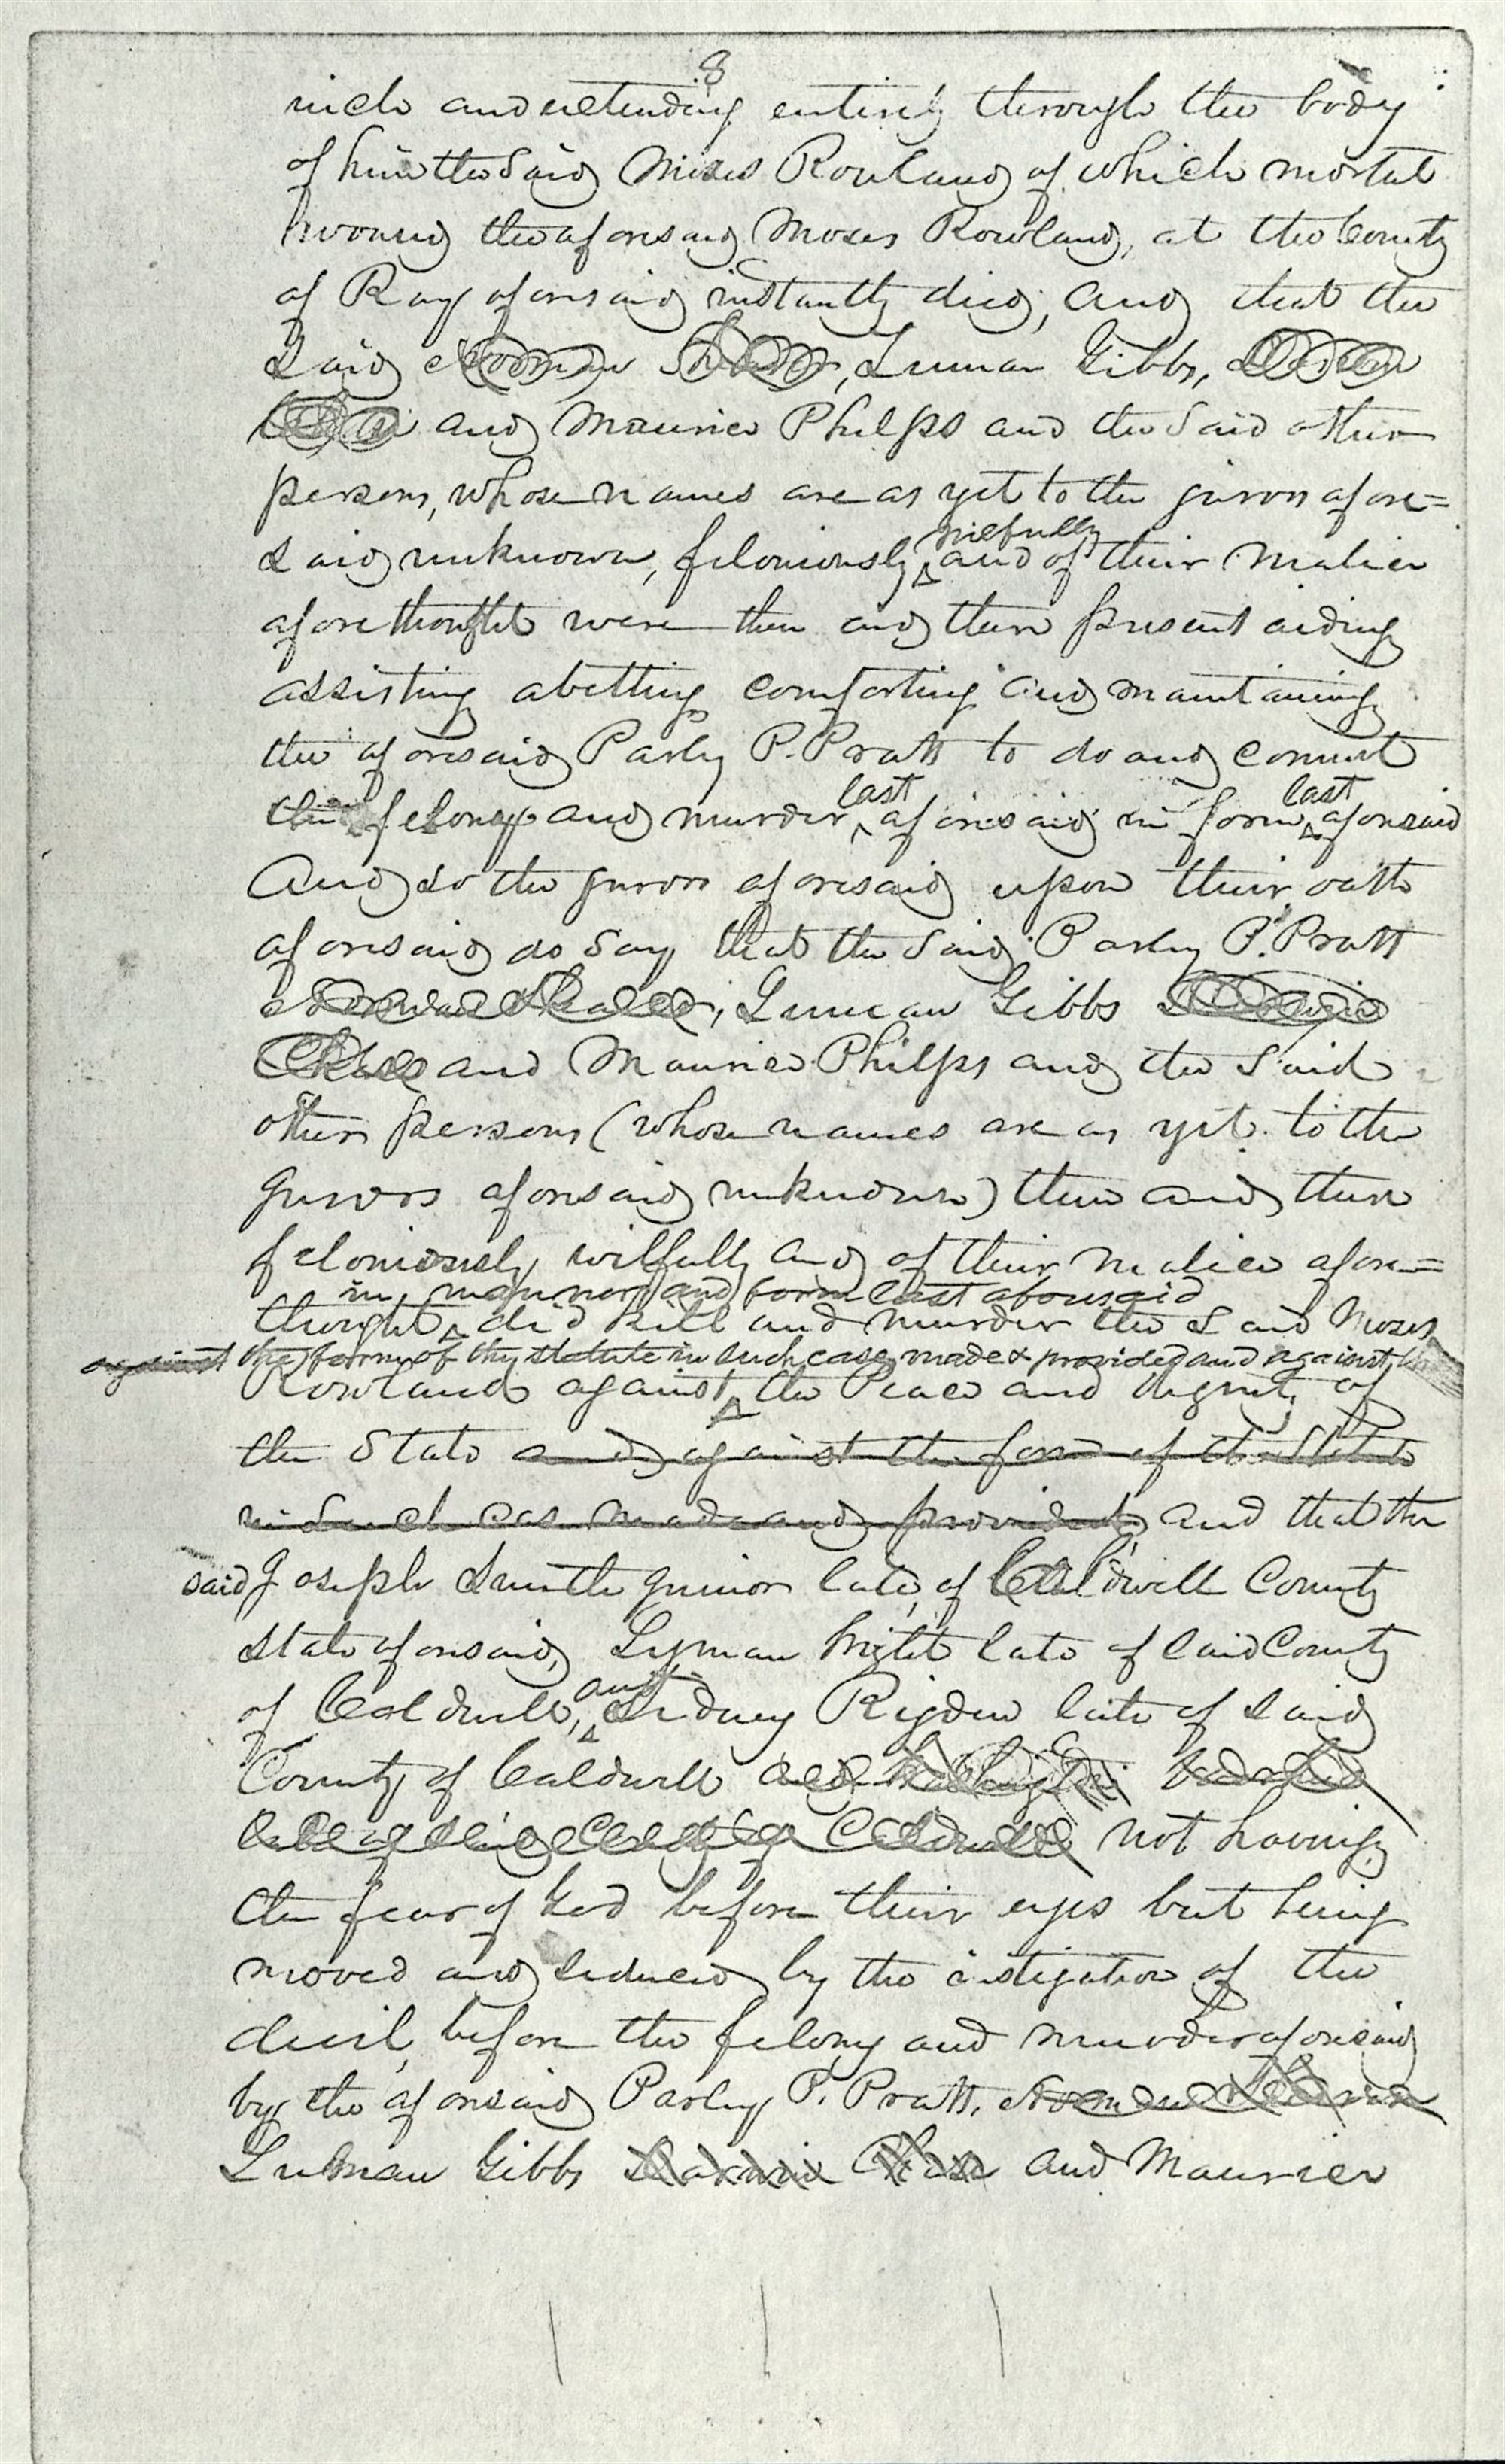 8
inch and extending entirely through the body
of him the said Moses Rowland of which mortal
wound the aforesaid Moses Rowland, at the County
of Ray aforesaid instantly died, and that the
said Luman Gibbs,
and Maurice Phelps and the said other
persons, whose names are as yet to the jurors afore=
wilfully
said unknown, feloniously and of their malice
aforethought were then and there present aiding
assisting abetting comforting and maintaining
the aforesaid Parley P. Pratt to do and commit
last last
the felony and murder aforesaid in form aforesaid
And so the jurors aforesaid upon their oath
aforesaid do say that the said Parley P. Pratt
Luman Gibbs
Chase and Maurice Phelps and the said
other persons (whose names are as yet to the
jurors aforesaid unknown) then and there
feloniously wilfully and of their malice afore=
in manner and form last aforesaid
thought did kill and murder the said Moses
against the form of the statute in such case made & provided and against
Rowland against the Peace and dignity of
the State and against the form of the Statute
in such case made and provided, and that the
said Joseph Smith junior late of Caldwell County
State aforesaid, Lyman Wight late of said County
and
of Caldwell, Sidney Rigdon late of said
County of Caldwell
late of said County of Caldwell not having
the fear of God before their eyes but being
moved and seduced by the instigation of the
devil, before the felony and murder aforesaid
by the aforesaid Parley P. Pratt,
Luman Gibbs Darwin Chase and Maurice